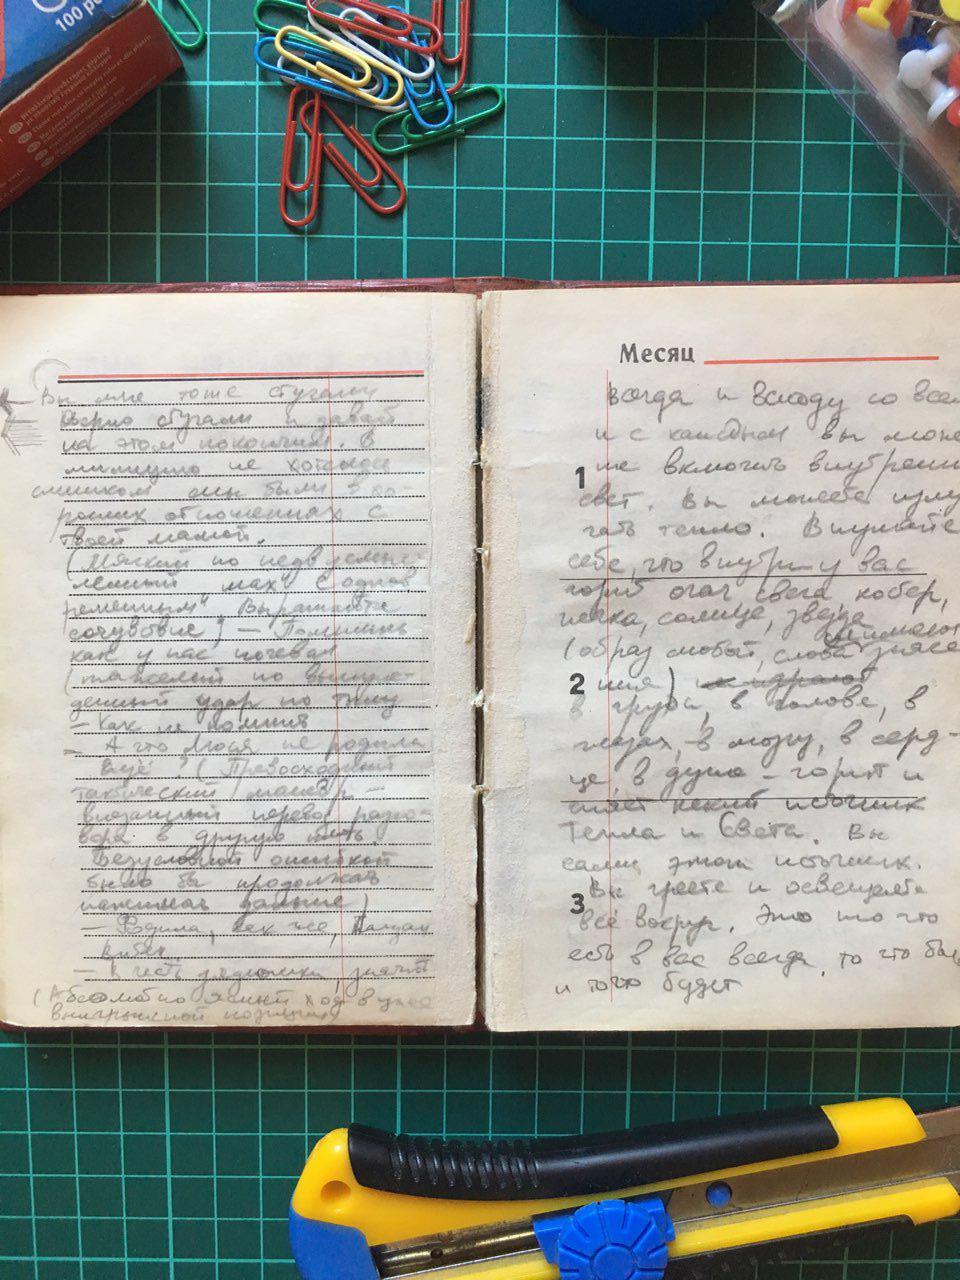 100
Вы мне тоже стучали
Верно стучали и давай
на этом покончим. В
милицию не хотелось
слишком мы были в хо-
роших отношениях с
твоей мамой.
(Мягкий но недвусмыс-
ленный "мах" с одно-
ременным" Вы
сочувствие) — Помнишь
как у нас ночевал
(тяжелый но вынуж-
денный удар по тылу
— Как не помнить
— А что Люся не родила
ещё? (Превосходный
тактический маневр —
внезапный перевод разго-
вора в другую
Безусловной ошибкой
было бы продолжать
дальше)
— Родила, как же, Пацан
— В честь дядюшки, значит
(Абсолютно ясный ход в уже
выигрышной позиции)
Месяц
Всегда и всюду со все
и с каждым вы може
1
те включить внутренн
свет. Вы можете излу
чать тепло. Внушайте
себе, что внутри у вас
горит очаг света костер,
свечка, солнце, звезда
(образ любой, слова
2
ния)
в груди, в голове, в
глазах, в мозгу, в серд-
це, в душе – горит и
сияет некий источник
Тепла и Света. Вы
сами этот источник.
3
Вы греете и освещаете
все вокруг. Это то что
есть в вас всегда, то что был
и того будет